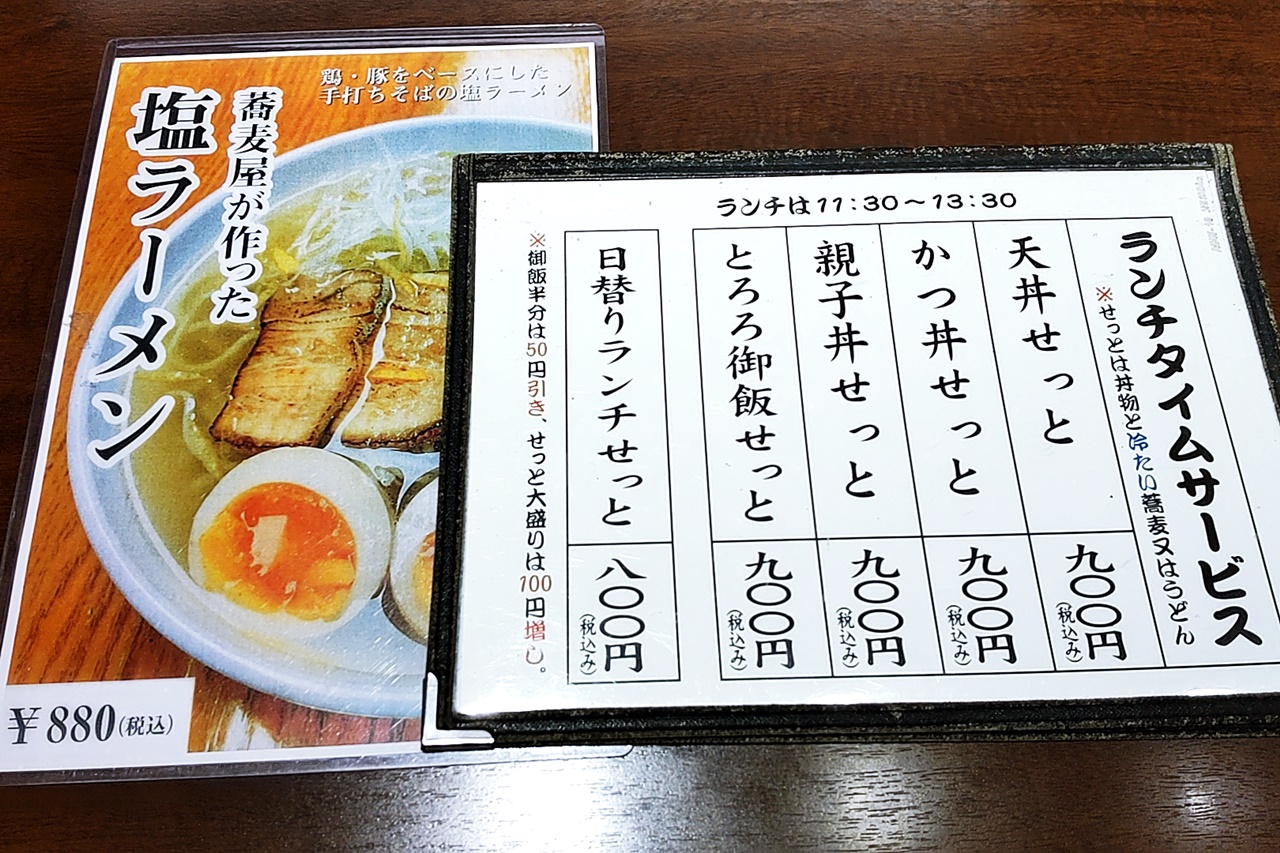 鶏・豚をベースにした
手打ちそばの塩ラーメン
蕎麦屋が作った
塩ラーメン
¥880(税込)
ランチは11:30～13:30
ランチタイムサービス
※せっとは丼物と冷たい蕎麦又はうどん
天丼せっと
九〇〇円
(税込み)
かつ丼せっと
九〇〇円
(税込み)
親子丼せっと
九〇〇円
(税込み)
とろろ御飯せっと
九〇〇円
(税込み)
日替りランチせっと
八〇〇円
(税込み)
※御飯半分は50円引き、せっと大盛りは100円増し。